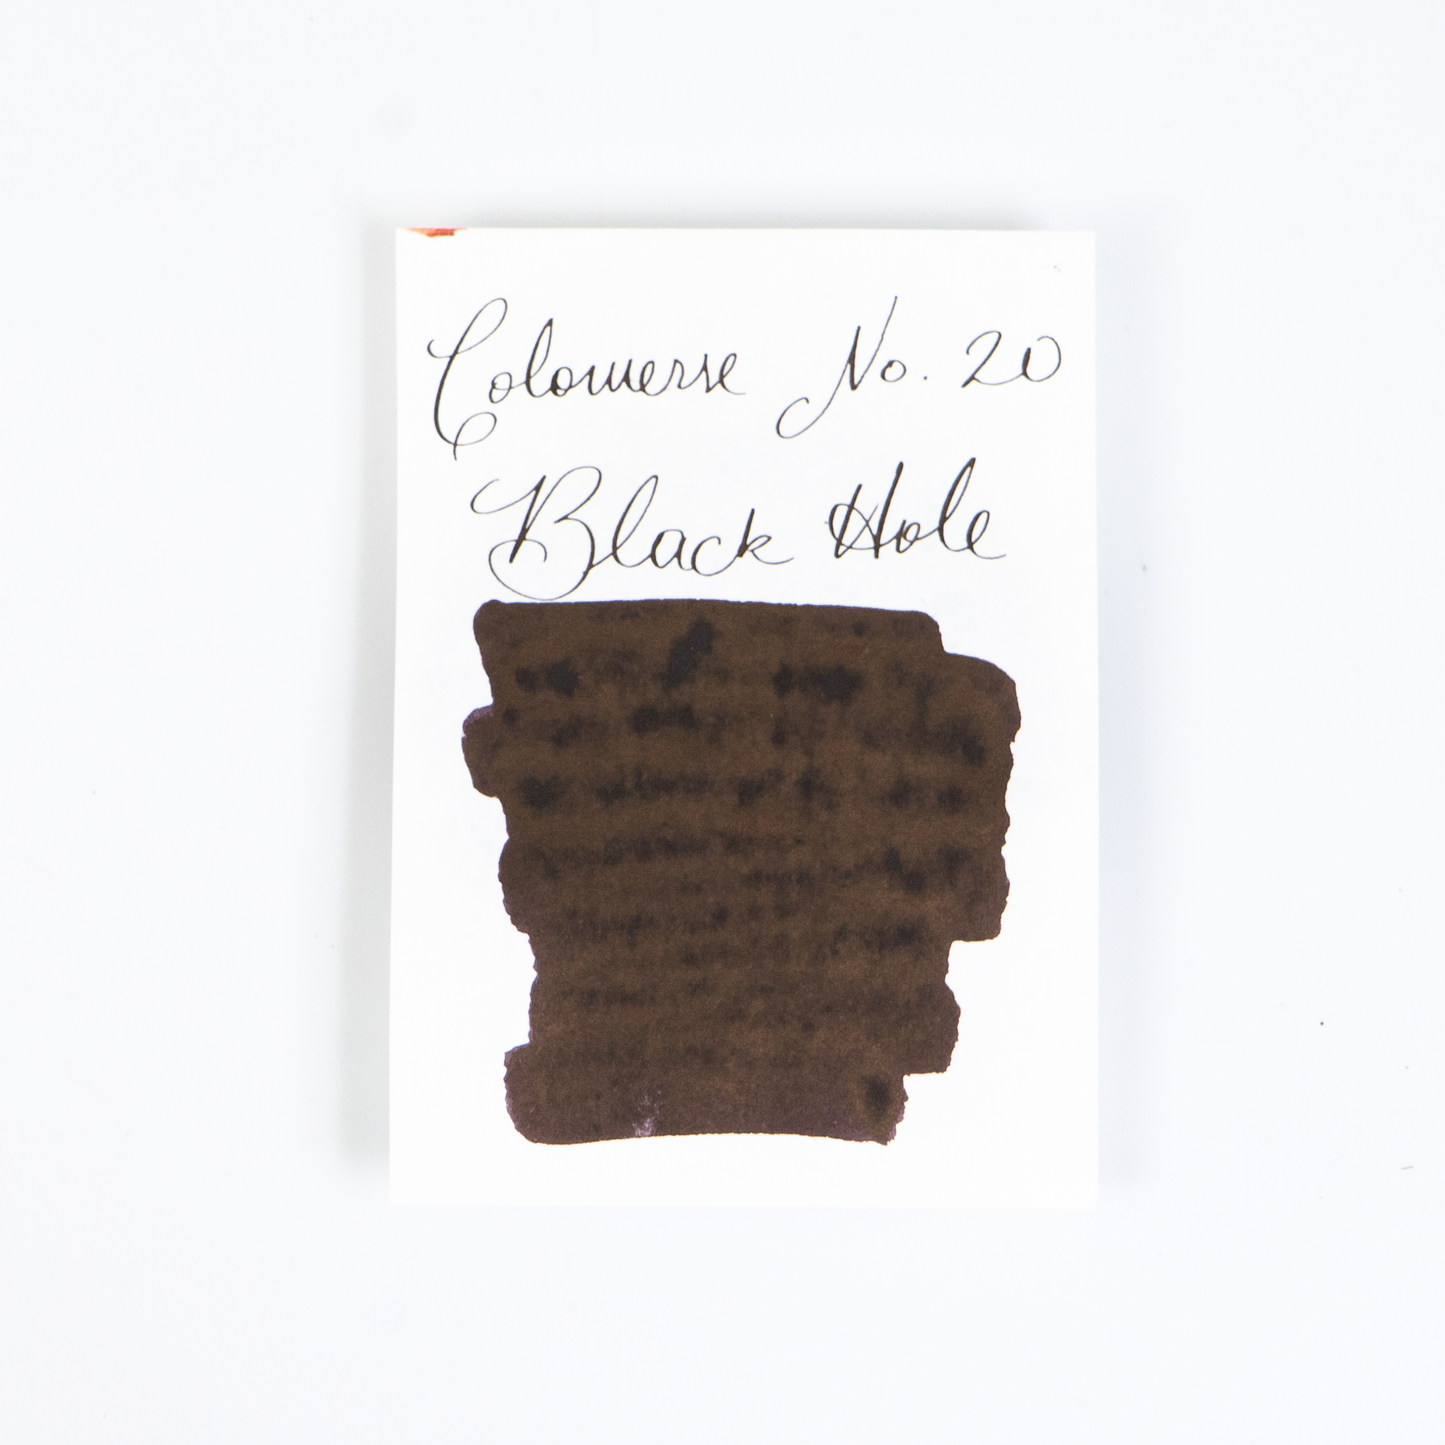 Coloverse No. 20
Black Hole